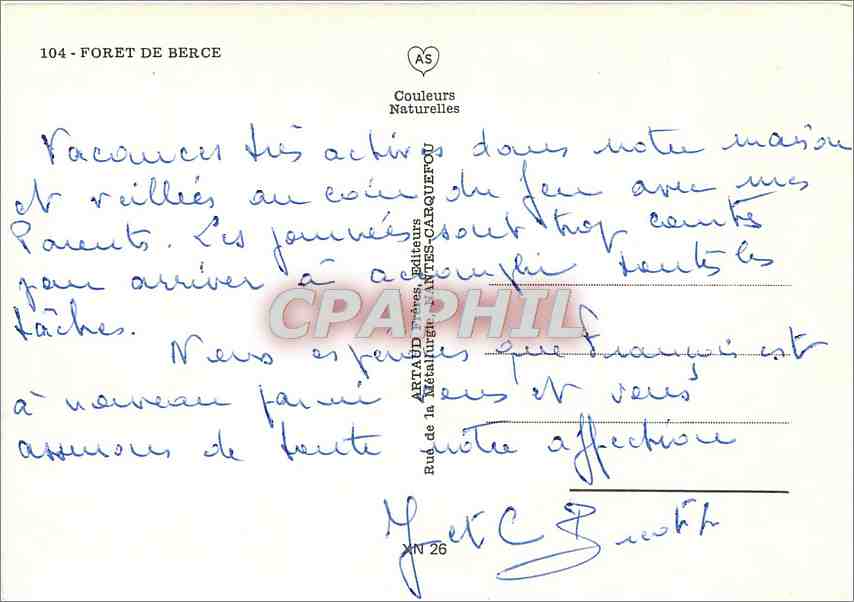 104 - FORET DE BERCE
AS
Couleurs
Naturelles
Vacances très actives dans notre maison
et veillées au coin du feu avec mes
Parents. Les journées sont trop courtes
pour arriver à accomplir toutes les
tâches.
Nous espérons que François est
à nouveau parmi vous et vous
assurons de toute notre affection
J et C
ARTAUD Frères, Editeurs
Rue de la Métallurgie, NANTES-CARQUEFOU
XN 26
CPAPHIL